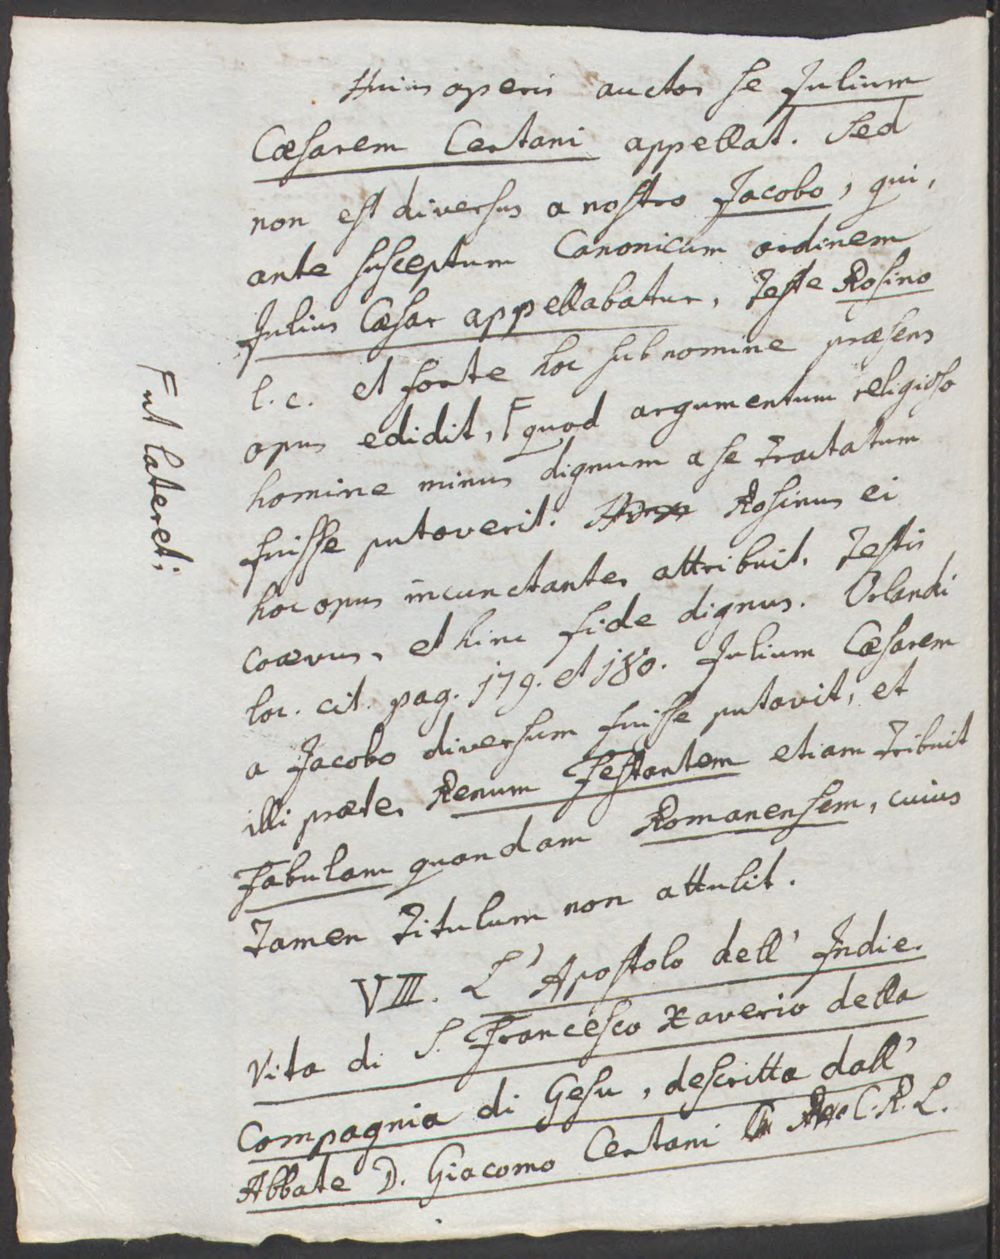 Huius operis auctor se Julium
Cæsarem Certani appellat. Sed
non est diversus a nostro Jacobo, qui,
ante susceptum Canonicum ordinem
Julius Cæsar appellabatur, teste Rosino
l. c. et forte hoc sub nomine præsens
opus edidit, Γ quod argumentum religioso
homine minus dignum a se tractatum
fuisse putaverit. Rosinus ei
hoc opus incunctanter attribuit, testis
coævus, et hinc fide dignus. Orlandi
loc. cit. pag. 179. et 180. Julium Cæsarem
a Jacobo diversum fuisse putavit, et
illi præter Renum Festantem etiam tribuit
Fabulam quandam Romanensem, cuius
tamen titulum non attulit.
VIII. L' Apostolo dell' Indie.
Vita di S. Francesco Xaverio della
Compagnia di Gesu, descritta dall'
Abbate D. Giacomo Certani C. R. L.
Γ ut lateret;